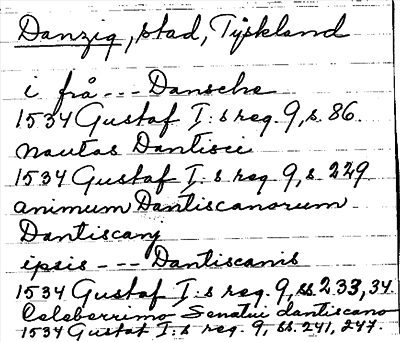 Danzig, stad, Tyskland
i frå --- Dansche
1534 Gustaf I:s reg. 9, s. 86.
nautas Dantisci
1534 Gustaf I:s reg. 9, s. 229
animum Dantiscanorum
Dantiscanj
ipsis --- Dantiscanis
1534 Gustaf I:s reg. 9, ss. 233, 34.
Celeberrimo Senatui dantiscano
1534 Gustaf I:s reg. 9, ss. 241, 247.